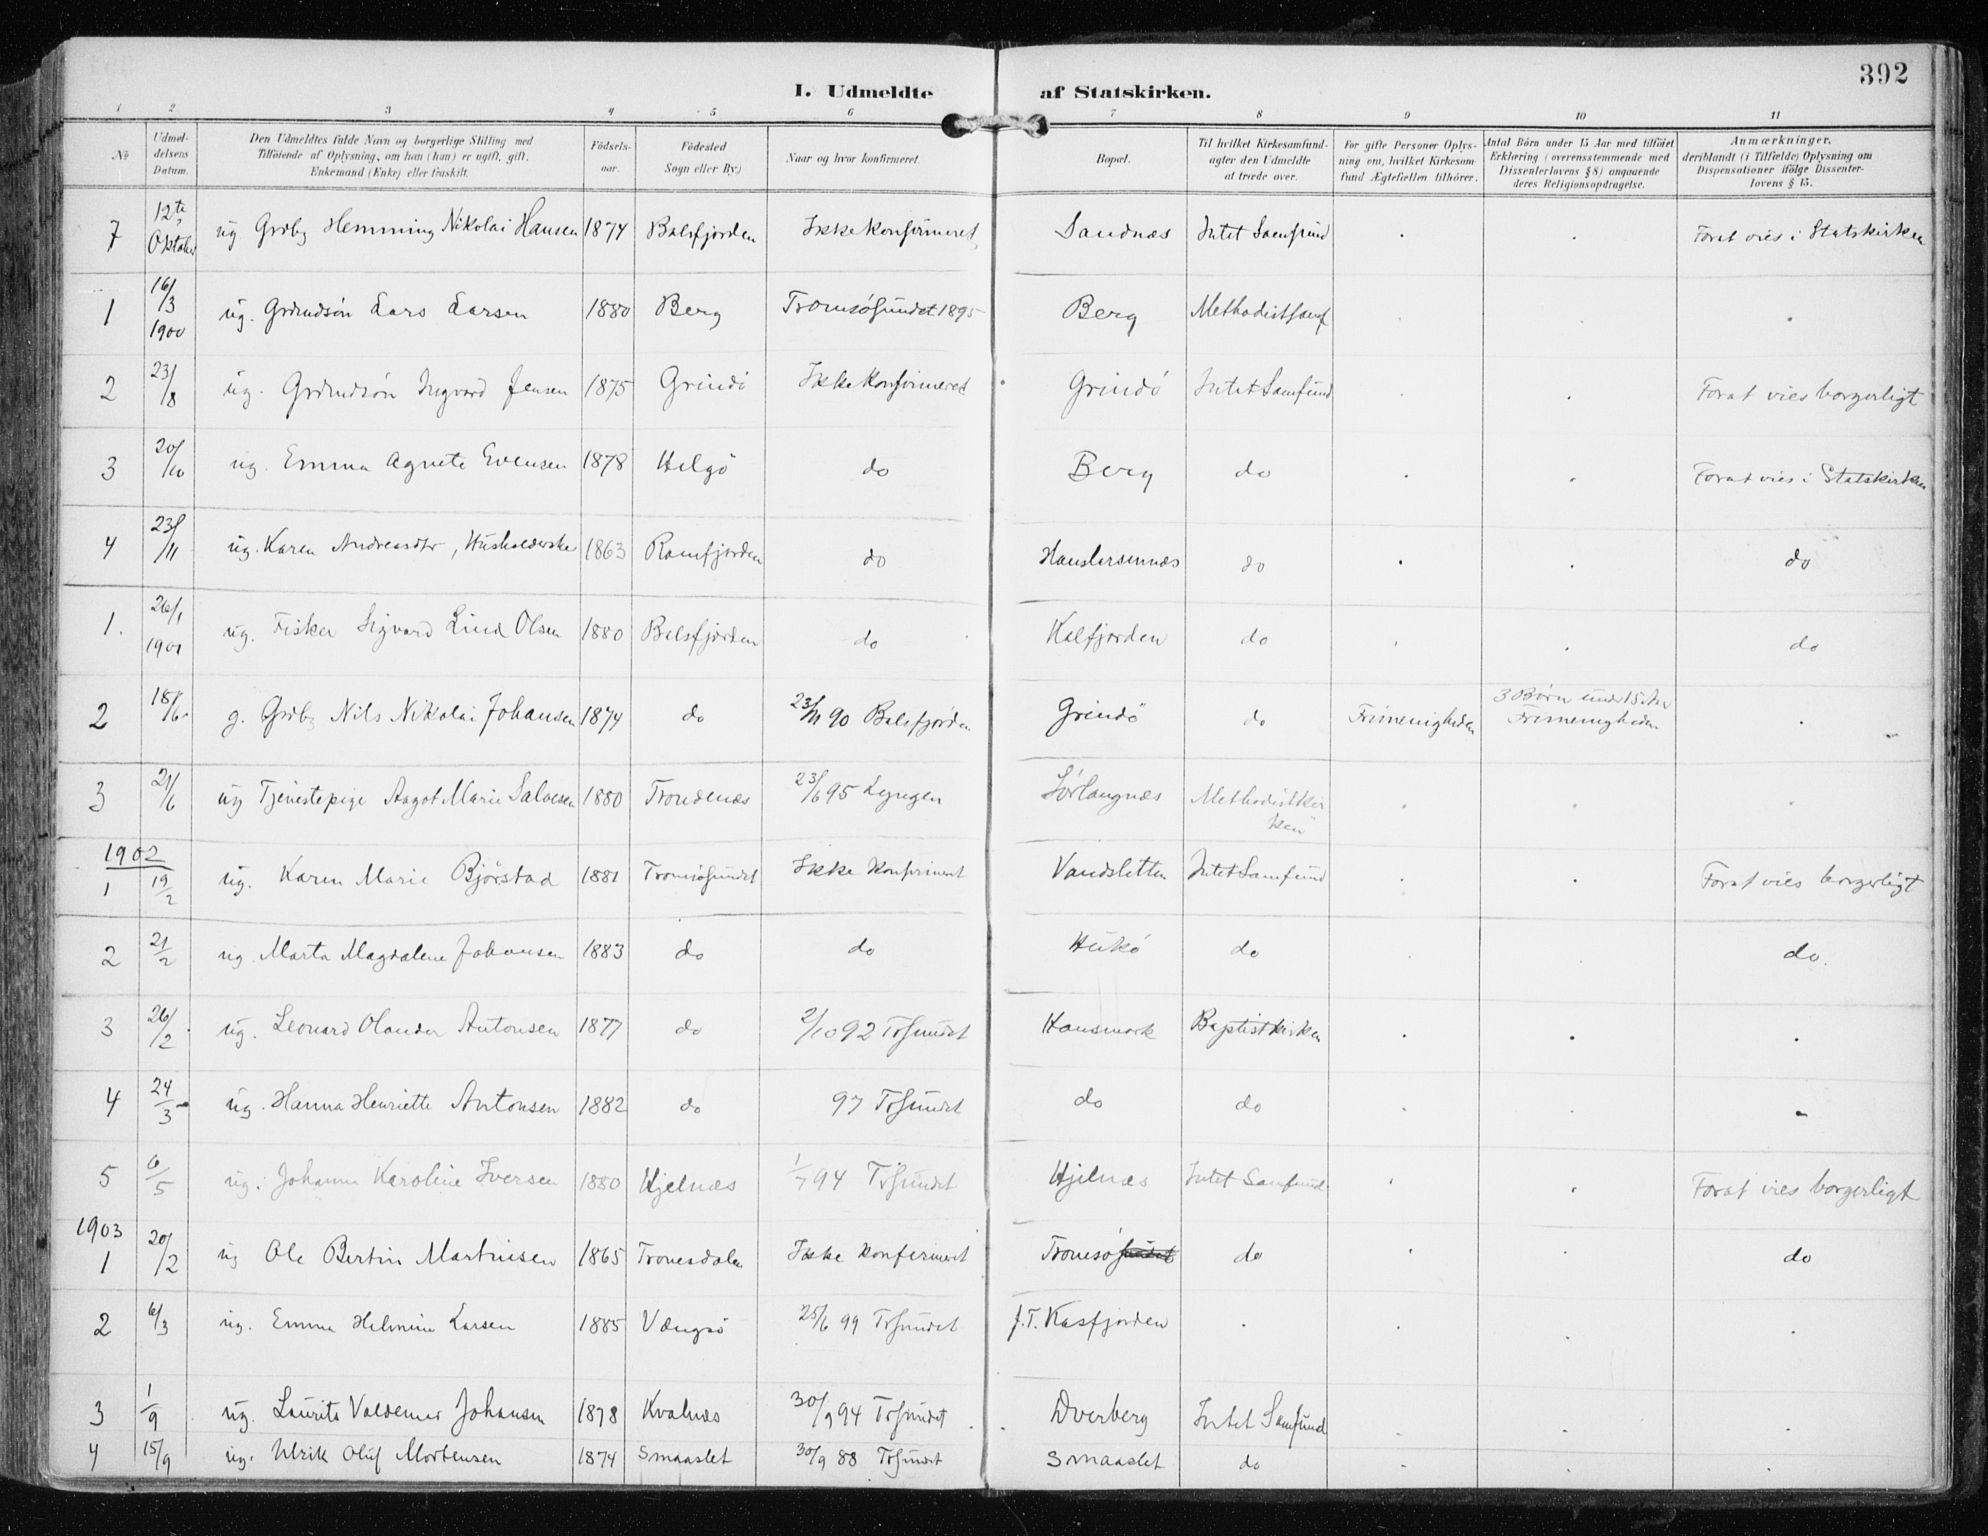 392
I. Udmeldte af Statskirken.
1 2 3 4 5 6 7 8 9 10 11
No
Udmeldelsens Datum.
Den Udmeldtes fulde Navn og borgerlige Stilling med
Tilföiende af Oplysning, om han (hun) er ugift, gift,
Enkemand (Enke) eller fraskilt.
Födselsaar.
Födested
Sogn eller By.)
Naar og hvor konfirmeret.
Bopæl.
Til hvilket Kirkesamfund
agter den Udmeldte
at træde over.
For gifte Personer Oplysning om, hvilket Kirkesamfund Ægtefællen tilhörer.
Antal Börn under 15 Aar med tilföiet
Erklæring (overensstemmende med
Dissenterlovens § 8) angaaende
deres Religionsopdragelse.
Anmærkninger,
deriblandt (i Tilfælde) Oplysning om
Dispensationer ifölge Dissenterlovens § 15.
7 12te Oktober ug Grdbg Hemming Nikolai Hansen 1874 Balsfjorden Ikke konfirmeret Sandnæs Intet Samfund . . Forat vies i Statskirken
1 16/3 1900 ug. Grdmdsön Lars Larsen 1880 Berg Tromsösundet 1895 Berg Methodistsamf . . .
2 23/8 ug. Grdmdsön Ingvard Jensen 1875 Grindö Ikke konfirmered Grindö Intet Samfund . . Forat vies borgerligt
3 20/10 ug. Emma Agnete Evensen 1878 Helgö do Berg do . . Forat vies i Statskirken
4 23/11 ug. Karen Andreasdtr, Husholderske 1863 Ramfjorden do do . . do
1. 26/1 1901 ug. Fisker Sigvard Lind Olsen 1880 Balsfjorden do Kalfjorden do . . do
2 18/6 g. Grdbg Nils Nikolai Johansen 1874 do 23/11 90 Balsfjorden Grindö do Frimenigheden 3 Börn under 15 Aar Frimenigheden .
3 21/6 ug Tjenestepige Aagot Marie Salvesen 1880 Trondenæs 23/6 95 Lyngen Sörlangnæs Methodistkirken . . .
1902
1 19/2 ug. Karen Marie Bjørstad 1881 Tromsösundet Ikke konfirmeret Vandsletten Intet Samfund . . Forat vies borgerligt
2 21/2 ug. Marta Magdalene Johansen 1883 do do do . . do.
3 26/2 ug. Leonard Olander Antonsen 1877 do 2/10 92 Trsundet Hansmark Baptistkirken . . .
4 24/3 ug. Hanna Henriette Antonsen 1882 do 97 Trsundet do do . . .
5 6/5 ug. Johanna Karoline Iversen 1880 Hjelnæs 1/7 94 Trsundet Hjelnæs Intet Samfund . . Forat vies borgerligt
1903
1 20/2 ug Ole Bertin Martinsen 1865 Tromsdalen Ikke konfirmeret Tromsösundet do . . do
2 6/3 ug. Emma Helmine Larsen 1885 Vængsö 25/6 99 Trsundet f.T. Kasfjorden . . . .
3 1/9 ug. Laurits Valdemar Johansen 1878 Kvalnæs 30/9 94 Trsundet Dverberg Intet Samfund . . .
4 15/9 ug. Ulrik Oluf Mortensen 1874 Smaaslet 30/9 88 Trsundet Smaaslet do . . .